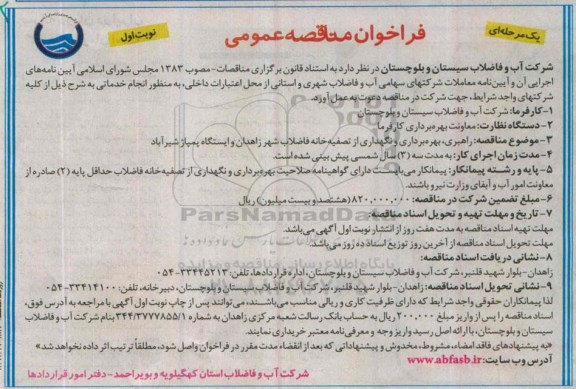 یک مرحله‌ای
فراخوان مناقصه عمومی
نوبت اول
شرکت آب و فاضلاب سیستان و بلوچستان در نظر دارد به استناد قانون برگزاری مناقصات-مصوب ۱۳۸۳ مجلس شورای اسلامی آیین نامه‌های
اجرایی آن و آیین‌نامه معاملات شرکتهای سهامی آب و فاضلاب شهری و استانی از محل اعتبارات داخلی، به منظور انجام خدماتی به شرح ذیل از کلیه
شرکتهای واجد شرایط، جهت شرکت در مناقصه دعوت به عمل آورد.
۱-کارفرما: شرکت آب و فاضلاب سیستان و بلوچستان
۲-دستگاه نظارت: معاونت بهره‌برداری کارفرما
۳-موضوع مناقصه: راهبری، بهره‌برداری و نگهداری از تصفیه خانه فاضلاب شهر زاهدان و ایستگاه پمپاژ شیرآباد
۴-مدت زمان اجرای کار: به مدت سه (۳) سال شمسی پیش بینی شده است.
۵- پایه و رشته پیمانکار: پیمانکار می‌بایست دارای گواهینامه صلاحیت بهره‌برداری و نگهداری از تصفیه‌خانه فاضلاب حداقل پایه (۲) صادره از
معاونت امور آب و آبفای وزارت نیرو باشند.
۶-مبلغ تضمین شرکت در مناقصه: ۸۲۰,۰۰۰,۰۰۰ (هشتصد و بیست میلیون) ریال
۷- تاریخ و مهلت تهیه و تحویل اسناد مناقصه:
مهلت تهیه اسناد مناقصه به مدت هفت روز از انتشار نوبت اول آگهی می‌باشد.
مهلت تحویل اسناد مناقصه از آخرین روز توزیع اسناد ده روز می‌باشد.
۸-نشانی دریافت اسناد مناقصه:
زاهدان-بلوار شهید قلنبر، شرکت آب و فاضلاب سیستان و بلوچستان، اداره قراردادها، تلفن: ۳۳۴۴۵۲۱۳-۰۵۴
۹-نشانی تحویل اسناد مناقصه: زاهدان-بلوار شهید قلنبر، شرکت آب و فاضلاب سیستان و بلوچستان، دبیرخانه، تلفن: ۳۳۴۱۴۱۰۰-۰۵۴
لذا پیمانکاران حقوقی واجد شرایط که دارای ظرفیت کاری و ریالی مناسب می‌باشند، می‌توانند پس از چاپ نوبت اول آگهی با مراجعه به آدرس فوق،
اسناد مناقصه را پس از واریز مبلغ ۲۰۰,۰۰۰ ریال به حساب بانک رسالت شعبه مرکزی زاهدان به شماره ۳۴۴/۳۷۷۷۸۵۵/۱ بنام شرکت آب و فاضلاب
سیستان و بلوچستان، با ارائه اصل رسید واریز وجه و معرفی‌نامه معتبر خریداری نمایند.
«به پیشنهادهای فاقد امضاء، مشروط، مخدوش و پیشنهاداتی که بعد از انقضاء مدت مقرر در فراخوان واصل شود، مطلقاً ترتیب اثر داده نخواهد شد»
آدرس وب سایت: www.abfasb.ir
شرکت آب و فاضلاب استان کهگیلویه و بویراحمد-دفتر امور قراردادها
ParsNamadData